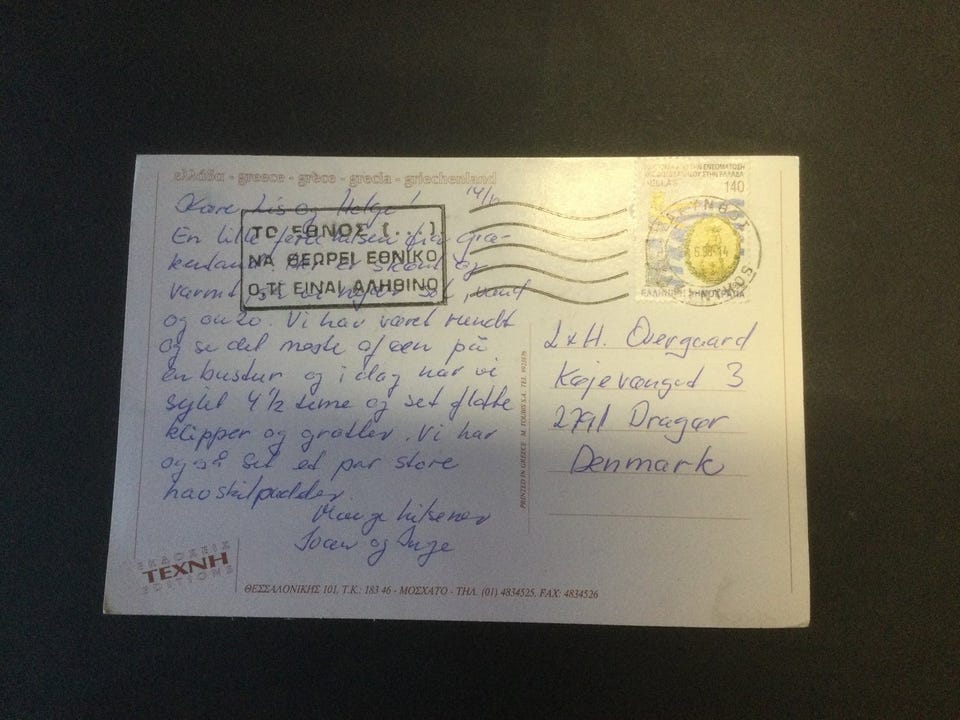 ελλάδα - greece - grèce - grecia - griechenland
Kære Lis og Helge!
En lille ferie hilsen fra Græ-
kenland. Her er skønt og
varmt,
og ouzo. Vi har været rundt
og se det meste af øen på
en bustur og i dag har vi
sejlet 4 1/2 time og set flotte
klipper og grotter. Vi har
også set et par store
havskilpadder.
Mange hilsener
og Inge
ΤΟ ΕΘΝΟΣ (...)
ΝΑ ΘΕΩΡΕΙ ΕΘΝΙΚΟ
Ο,ΤΙ ΕΙΝΑΙ ΑΛΗΘΙΝΟ
ΣΤΗΝ ΕΛΛΑΔΑ
HELLAS 140
ΕΛΛΗΝΙΚΗ ΔΗΜΟΚΡΑΤΙΑ
ΖΑΚΥΝΘΟΣ
L & H. Overgaard
Køjevænget 3
2791 Dragør
Denmark
PRINTED IN GREECE M. TOUBIS S.A. TEL.
ΕΚΔΟΣΕΙΣ
ΤΕΧΝΗ
EDITIONS
ΘΕΣΣΑΛΟΝΙΚΗΣ 101, Τ.Κ.: 183 46 - ΜΟΣΧΑΤΟ - ΤΗΛ. (01) 4834525, FAX: 4834526